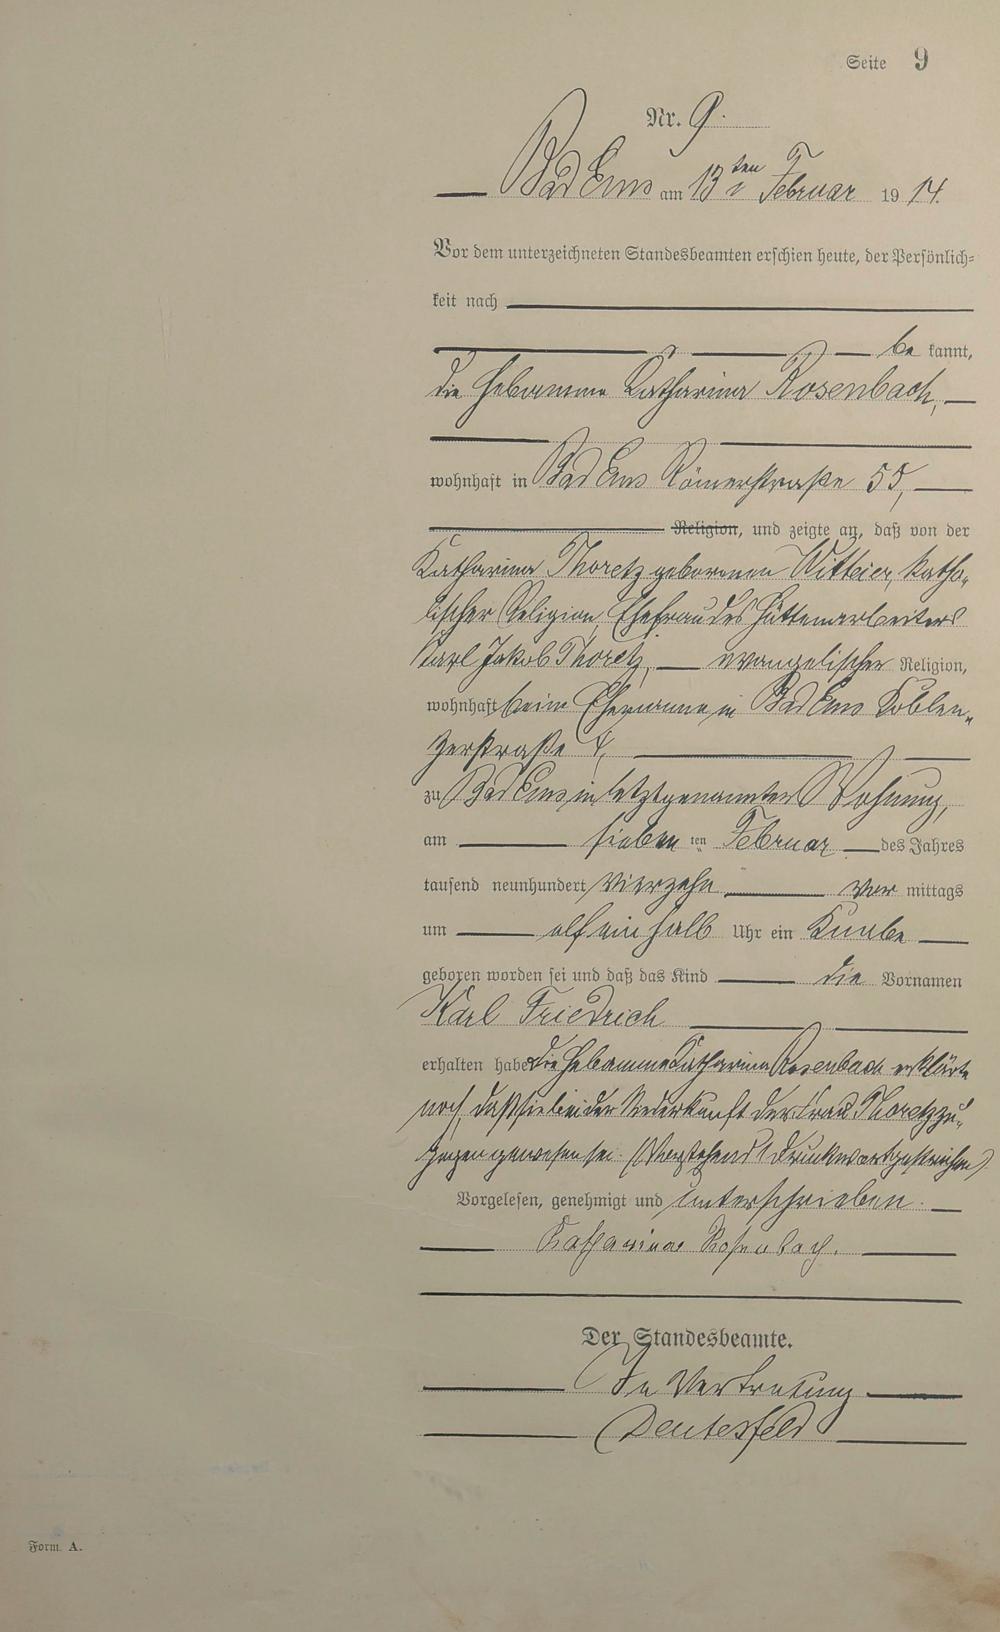 Seite 9
Nr. 9.
Bad Ems am 13ten Februar 1914.
Vor dem unterzeichneten Standesbeamten erschien heute, der Persönlich=
keit nach
be kannt,
die Hebamme Katharina Rosenbach,
wohnhaft in Bad Ems Römerstraße 55,
Religion, und zeigte an, daß von der
Katharina Thoretz geborenen Witteier, katho„
lischer Religion, Ehefrau des Hüttenarbeiters
Karl Jakob Thoretz, evangelischer Religion,
wohnhaft beim Ehemanne in Bad Ems Koblen„
zerstraße 4,
zu Bad Ems in letztgenannter Wohnung,
am sieben ten Februar des Jahres
tausend neunhundert vierzehn vor mittags
um elf ein halb Uhr ein Knabe
geboren worden sei und daß das Kind die Vornamen
Karl Friedrich
erhalten habe. Die Hebamme Katharina Rosenbach erklärte
noch, daß sie bei der Niederkunft der Frau Thoretz zu„
gegen gewesen sei. (Vorstehend 1 Druckwort gestrichen)
Vorgelesen, genehmigt und unterschrieben.
Katharina Rosenbach.
Der Standesbeamte.
In Vertretung
Form. A.